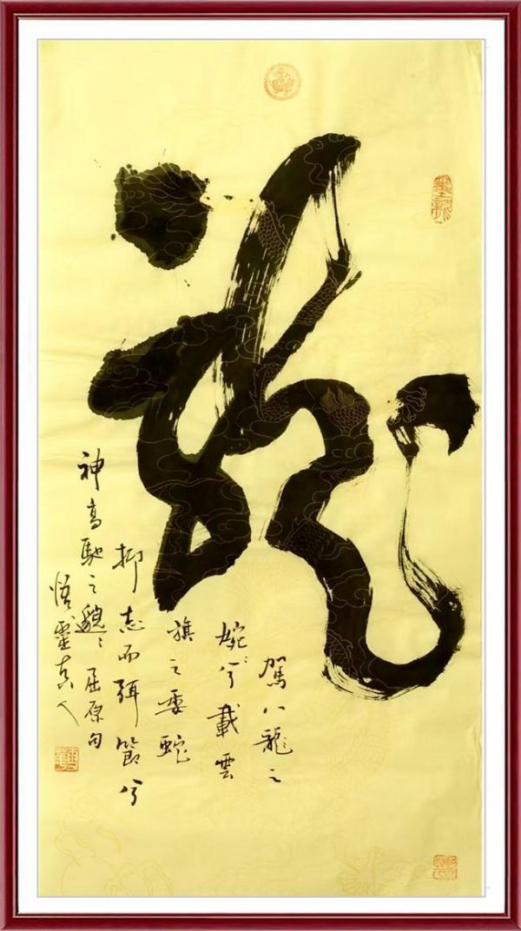 龍
駕八龍之
婉々兮載雲
旗之委蛇
抑志而弭節兮
神高馳之邈々屈原句
悟靈真人